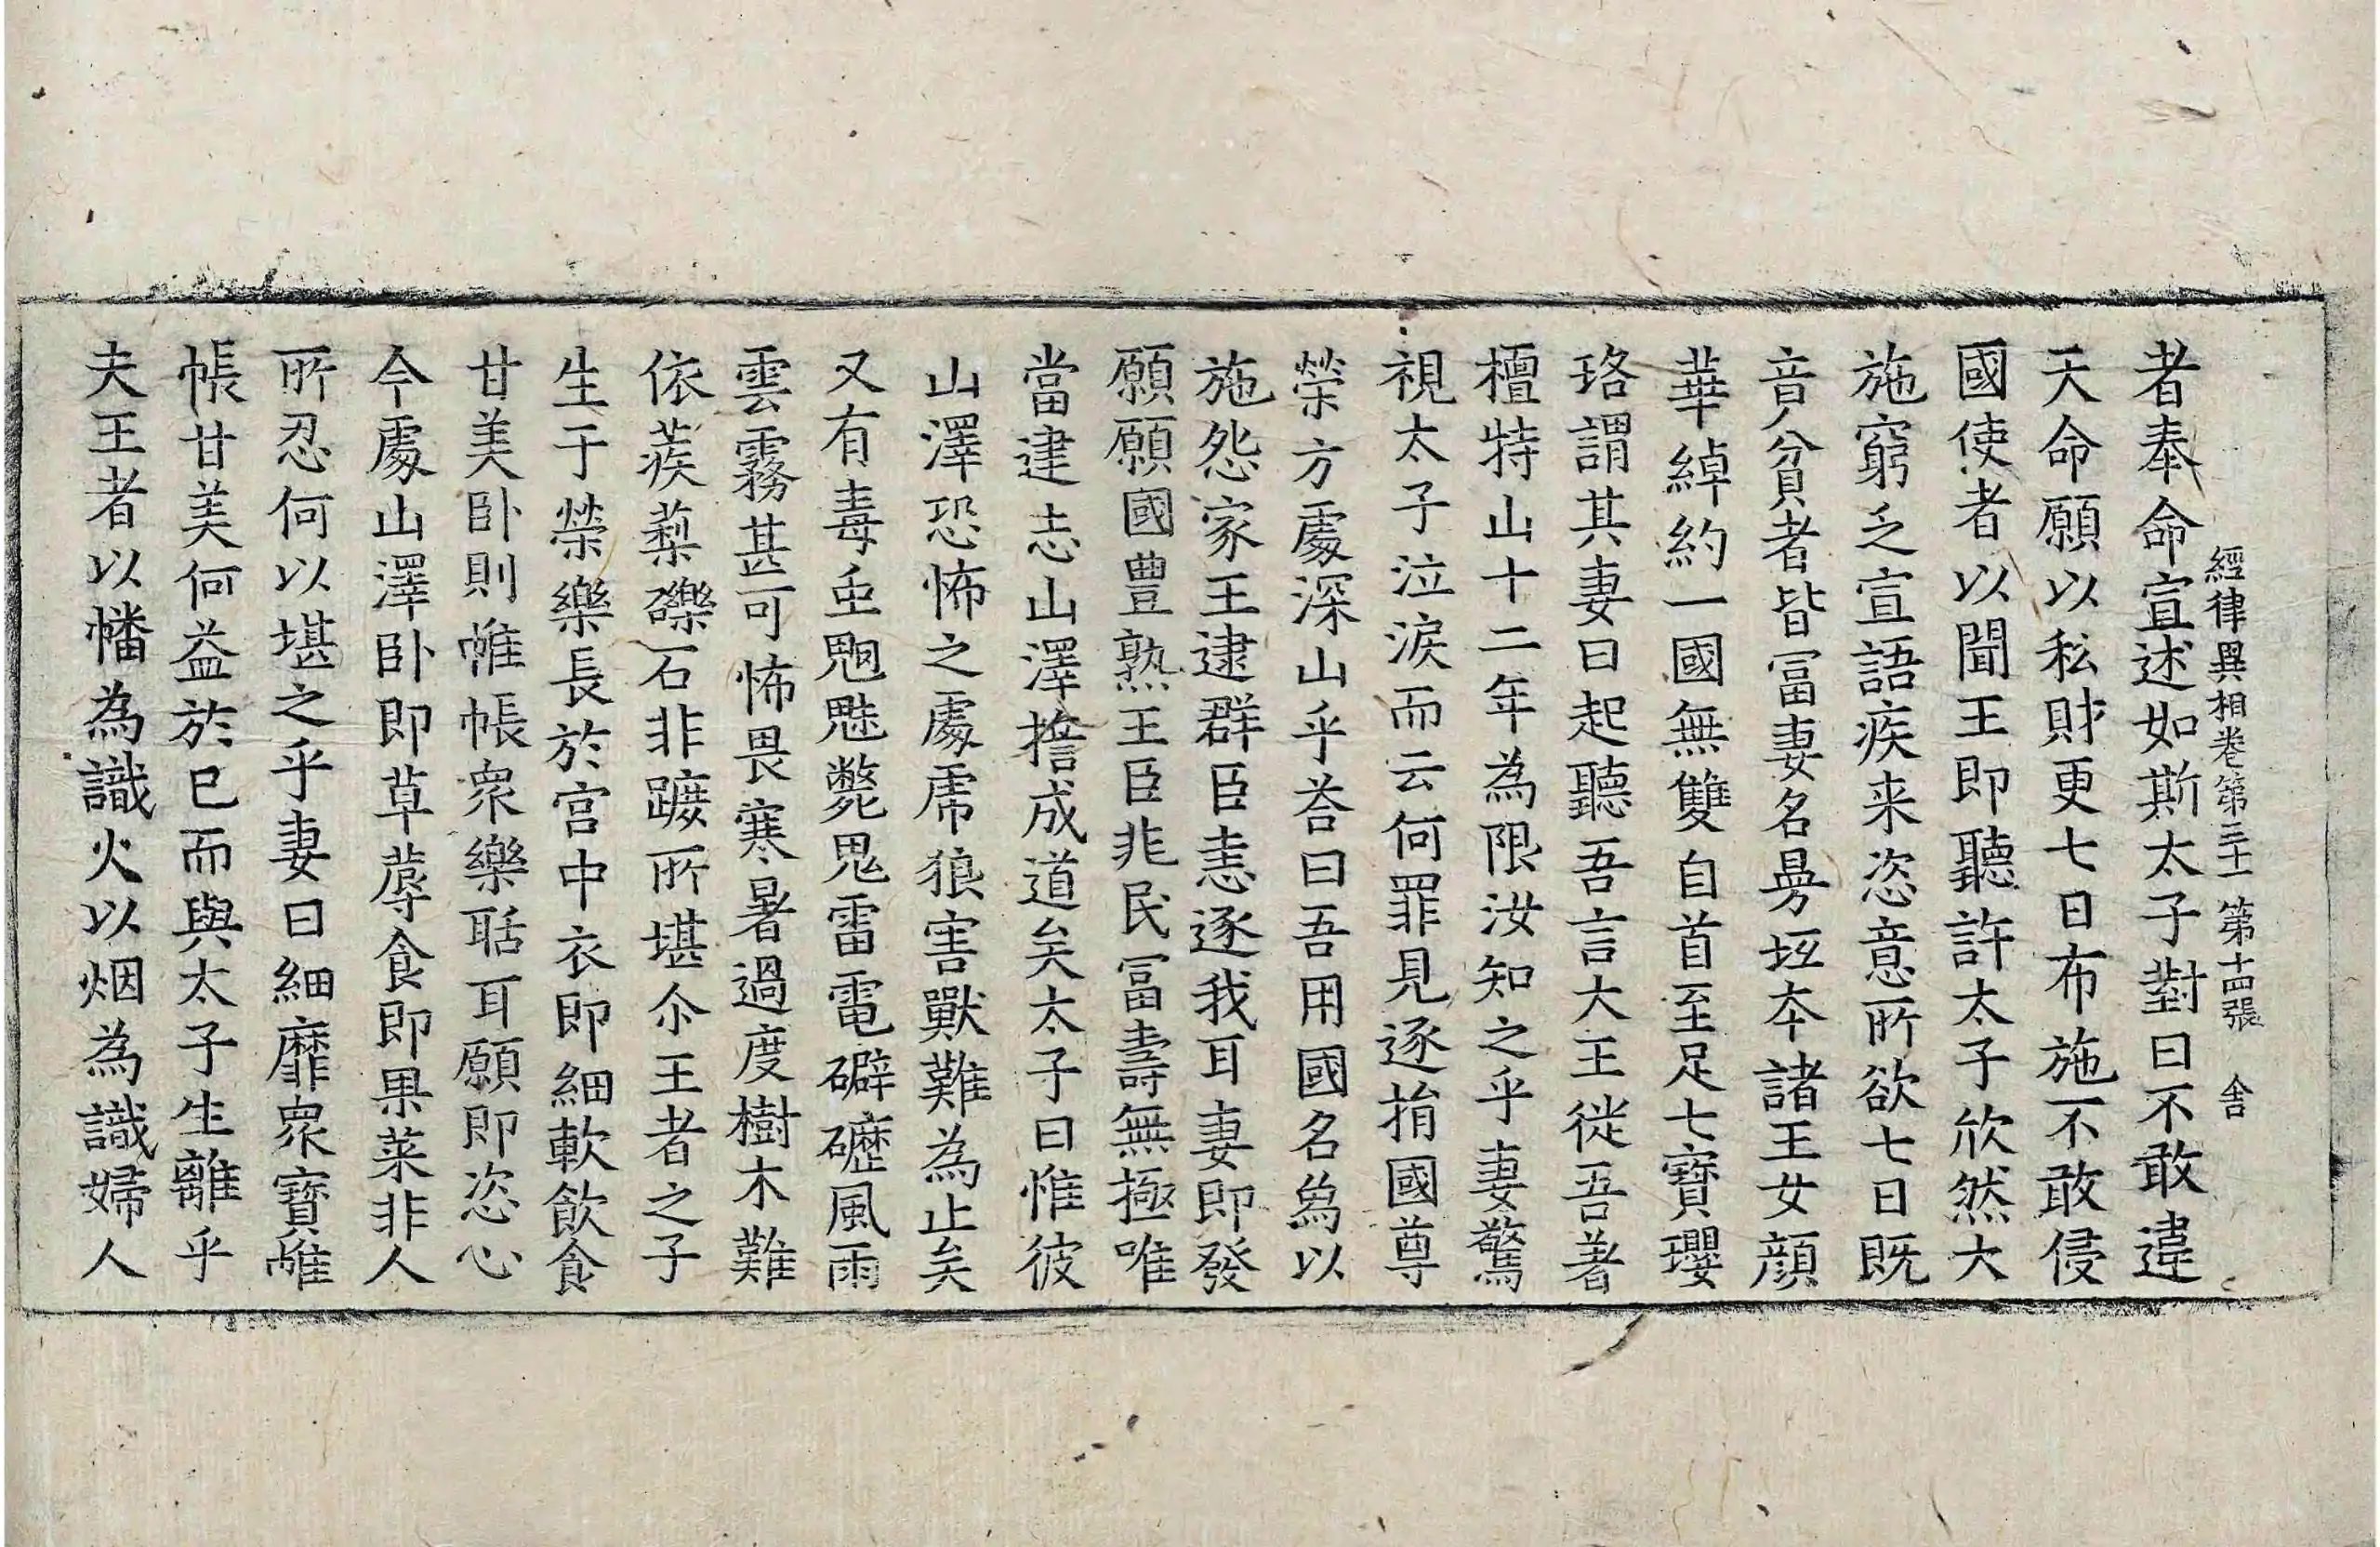 經律異相卷第三十一 第十四張 舎
者奉命宣述如斯太子對曰不敢違
天命願以私財更七日布施不敢侵
國使者以聞王即聽許太子欣然大
施窮乏宣語疾来恣意所欲七日既
音貧者皆冨妻名㬅坻夲諸王女顔
華綽約一國無雙自首至足七寶瓔
珞謂其妻曰起聽吾言大王徙吾著
檀特山十二年為限汝知之乎妻驚
視太子泣淚而云何罪見逐捐國尊
榮方處深山乎荅曰吾用國名爲以
施怨家王逮群臣恚逐我耳妻即發
願願國豊熟王臣兆民冨壽無極唯
當建志山澤擔成道矣太子曰惟彼
山澤恐怖之處虎狼害獸難為止矣
又有毒䖝魍魅斃鬼雷電礔礰風雨
雲霧甚可怖畏寒暑過度樹木難
依蒺蔾礫石非蹠所堪尒王者之子
生于榮樂長於宫中衣即細軟飲食
甘美卧則帷帳衆樂聒耳願即恣心
今處山澤卧即草蓐食即果菜非人
所忍何以堪之乎妻曰細靡衆寶帷
帳甘美何益於已而與太子生離乎
夫王者以幡為識火以烟為識婦人